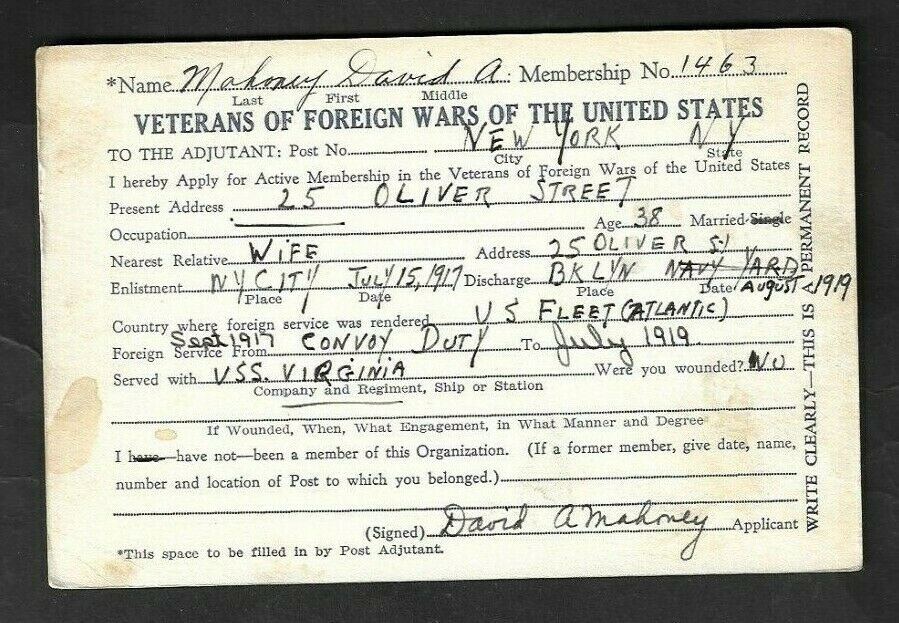 *Name Mahoney David A. Membership No. 1463
Last First Middle
VETERANS OF FOREIGN WARS OF THE UNITED STATES
TO THE ADJUTANT: Post No. NEW YORK NY
City State
I hereby Apply for Active Membership in the Veterans of Foreign Wars of the United States
Present Address 25 OLIVER STREET
Occupation Age 38 Married-Single
Nearest Relative WIFE Address 25 OLIVER St
Enlistment NY CITY JULY 15, 1917 Discharge BKLYN NAVY YARD AUGUST 1919
Place Date Place Date
Country where foreign service was rendered US FLEET (ATLANTIC)
Foreign Service From Sept 1917 CONVOY DUTY To July 1919.
Served with USS. VIRGINIA Were you wounded? NO
Company and Regiment, Ship or Station
If Wounded, When, What Engagement, in What Manner and Degree
I have—have not—been a member of this Organization. (If a former member, give date, name,
number and location of Post to which you belonged.)
(Signed) David A Mahoney Applicant
*This space to be filled in by Post Adjutant.
WRITE CLEARLY—THIS IS A PERMANENT RECORD